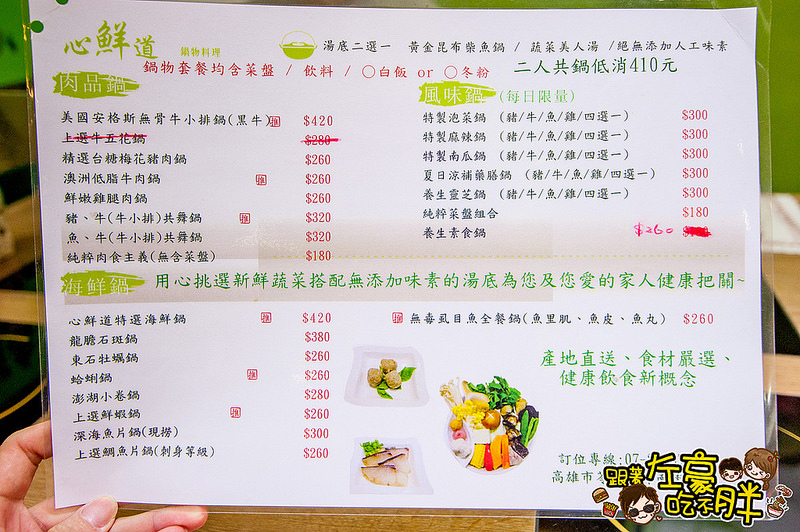 心鮮道 鍋物料理
湯底二選一 黃金昆布柴魚鍋 / 蔬菜美人湯 /絕無添加人工味素
鍋物套餐均含菜盤 / 飲料 / ○白飯 or ○冬粉 二人共鍋低消410元
肉品鍋
美國安格斯無骨牛小排鍋(黑牛) 推 $420
上選牛五花鍋 $280
精選台糖梅花豬肉鍋 $260
澳洲低脂牛肉鍋 推 $260
鮮嫩雞腿肉鍋 $260
豬、牛(牛小排)共舞鍋 推 $320
魚、牛(牛小排)共舞鍋 $320
純粹肉食主義(無含菜盤) $180
風味鍋 (每日限量)
特製泡菜鍋 (豬/牛/魚/雞/四選一) $300
特製麻辣鍋 (豬/牛/魚/雞/四選一) $300
特製南瓜鍋 (豬/牛/魚/雞/四選一) $300
夏日涼補藥膳鍋 (豬/牛/魚/雞/四選一) $300
養生靈芝鍋 (豬/牛/魚/雞/四選一) $300
純粹菜盤組合 $180
養生素食鍋 $260
海鮮鍋 用心挑選新鮮蔬菜搭配無添加味素的湯底為您及您愛的家人健康把關~
心鮮道特選海鮮鍋 推 $420
龍膽石斑鍋 $380
東石牡蠣鍋 $260
蛤蜊鍋 推 $260
澎湖小卷鍋 $280
上選鮮蝦鍋 推 $260
深海魚片鍋(現撈) $300
上選鯛魚片鍋(刺身等級) $260
推 無毒虱目魚全餐鍋(魚里肌、魚皮、魚丸) $260
產地直送、食材嚴選、
健康飲食新概念
訂位專線:07-
高雄市
跟著左豪吃不胖